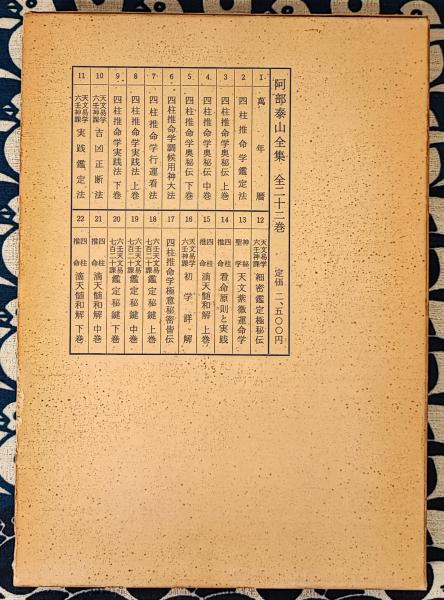 阿部泰山全集 全二十二巻
定価 二、五〇〇円
1 萬年暦
2 四柱推命学鑑定法
3 四柱推命学奥秘伝 上巻
4 四柱推命学奥秘伝 中巻
5 四柱推命学奥秘伝 下巻
6 四柱推命学調候用神大法
7 四柱推命学行運看法
8 四柱推命学実践法 上巻
9 四柱推命学実践法 下巻
10 天文易学六壬神課 吉凶正断法
11 天文易学六壬神課 実践鑑定法
12 天文易学六壬神課 細密鑑定極秘伝
13 神秘聖学 天文紫微運命学
14 四柱推命 看命原則と実践
15 四柱推命 滴天髄和解 上巻
16 天文易学六壬神課 初学詳解
17 四柱推命学極意秘密皆伝
18 六壬天文易七百二十課 鑑定秘鍵 上巻
19 六壬天文易七百二十課 鑑定秘鍵 中巻
20 六壬天文易七百二十課 鑑定秘鍵 下巻
21 四柱推命 滴天髄和解 中巻
22 四柱推命 滴天髄和解 下巻